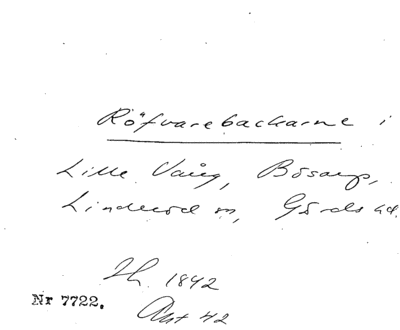 Röfvarebackarne i
Lille Vång, Bösarp,
Linderöd sn, Gärds hd.
Th. 1842
Nr 7722.
Akt 42